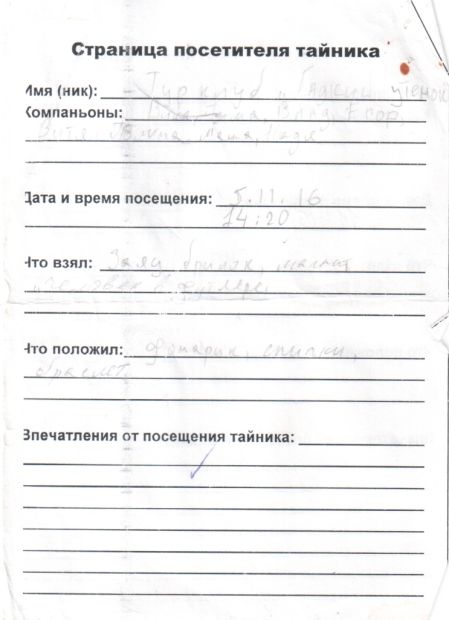 Страница посетителя тайника
Имя (ник): Тур клуб "Гадкий утенок
Компаньоны: Влад, Егор,
Витя
Дата и время посещения: 5.11.16
14:20
Что взял: Заяц, брилок, магнит
человек в футляре
Что положил: Фонарик, спички,
браслет
Впечатления от посещения тайника: